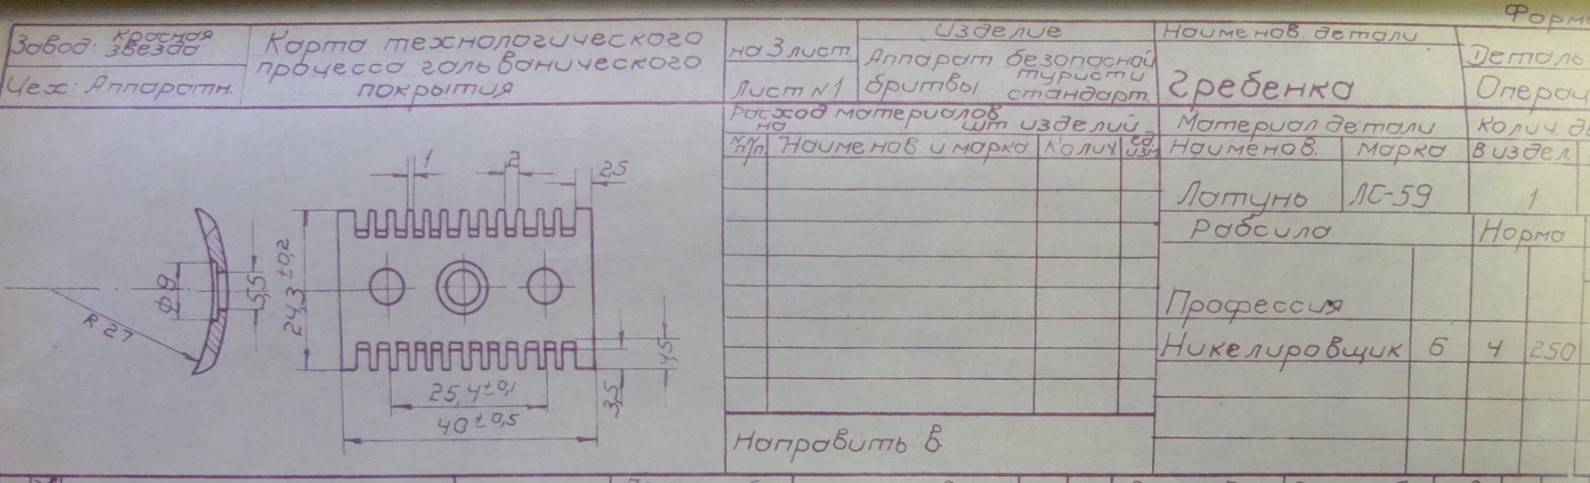 Форм
Завод: Красная звезда
Цех: Аппаратн.
Карта технологического
процесса гальванического
покрытия
на 3 лист.
Лист №1
Изделие
Аппарат безопасной
бритвы туристи
стандарт.
Наименов. детали
Гребенка
Деталь
Операц
Расход материалов
на шт изделий
№ п/п Наименов. и марка Колич ед. изм
Материал детали
Наименов. марка
Колич. д
в издел
Латунь ЛС-59 1
Рабсила Норма
Профессия
Никелировщик 6 4 250
Направить в
1 2 2,5
R 27
Ф 9
5,5
24,3 ±0,2
25,4 ±0,1
40 ±0,5
3,5
4,5